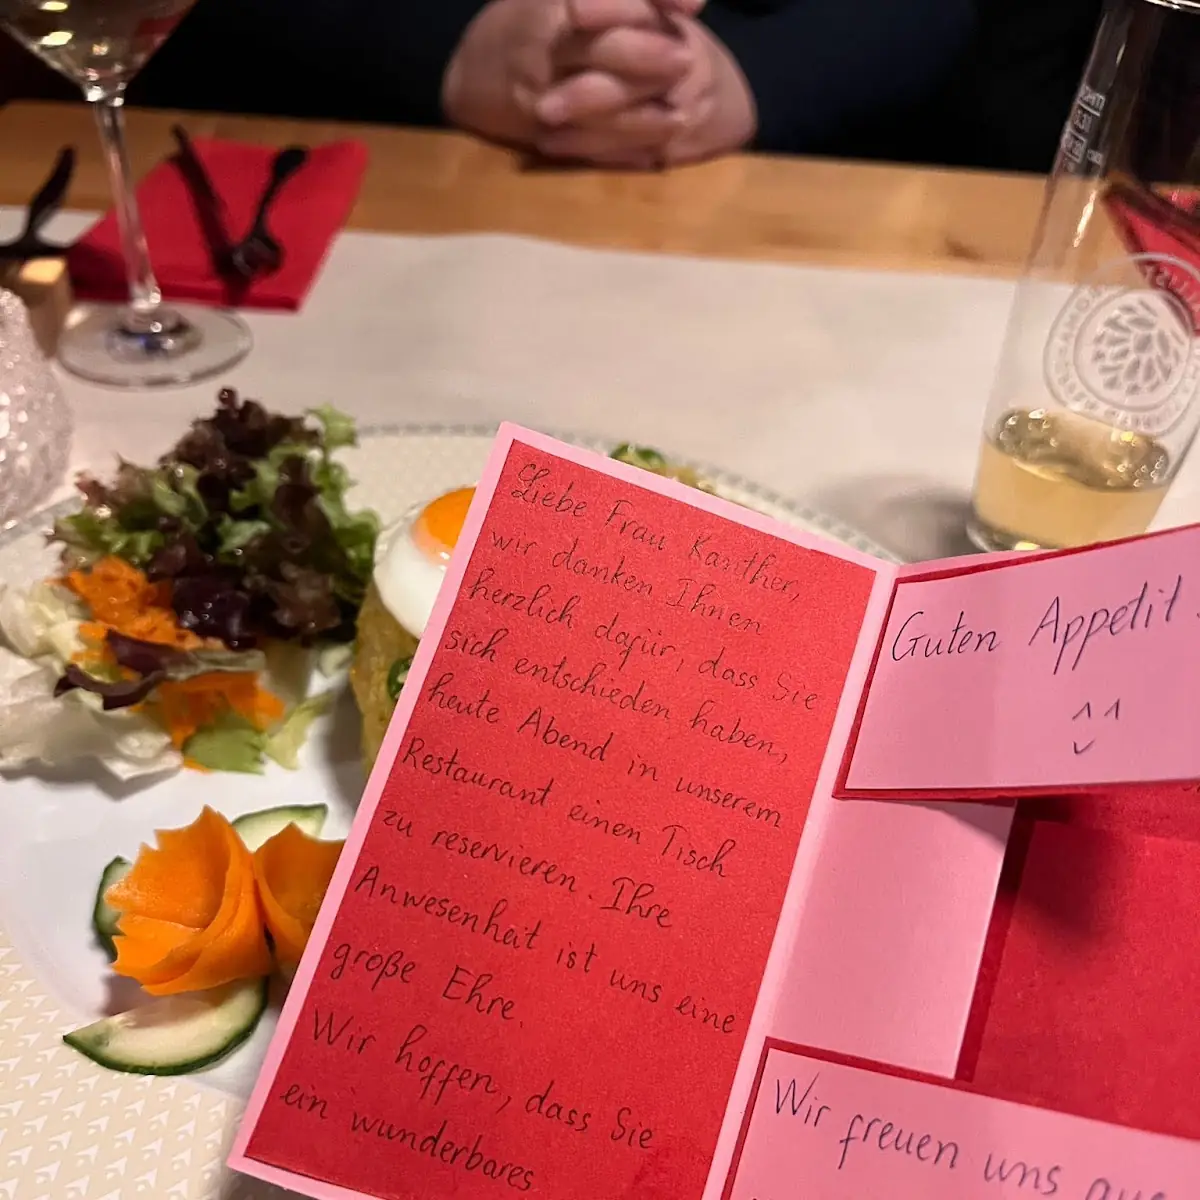 Liebe Frau Kanther,
wir danken Ihnen
herzlich dafür, dass Sie
sich entschieden haben,
heute Abend in unserem
Restaurant einen Tisch
zu reservieren. Ihre
Anwesenheit ist uns eine
große Ehre.
Wir hoffen, dass Sie
ein wunderbares
Guten Appetit
Wir freuen uns